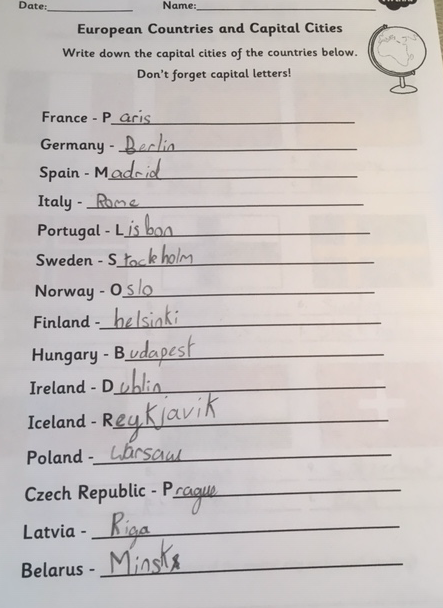 Date: Name:
European Countries and Capital Cities
Write down the capital cities of the countries below.
Don't forget capital letters!
France - Paris
Germany - Berlin
Spain - Madrid
Italy - Rome
Portugal - Lisbon
Sweden - Stockholm
Norway - Oslo
Finland - helsinki
Hungary - Budapest
Ireland - Dublin
Iceland - Reykjavik
Poland - Warsaw
Czech Republic - Prague
Latvia - Riga
Belarus - Minsk